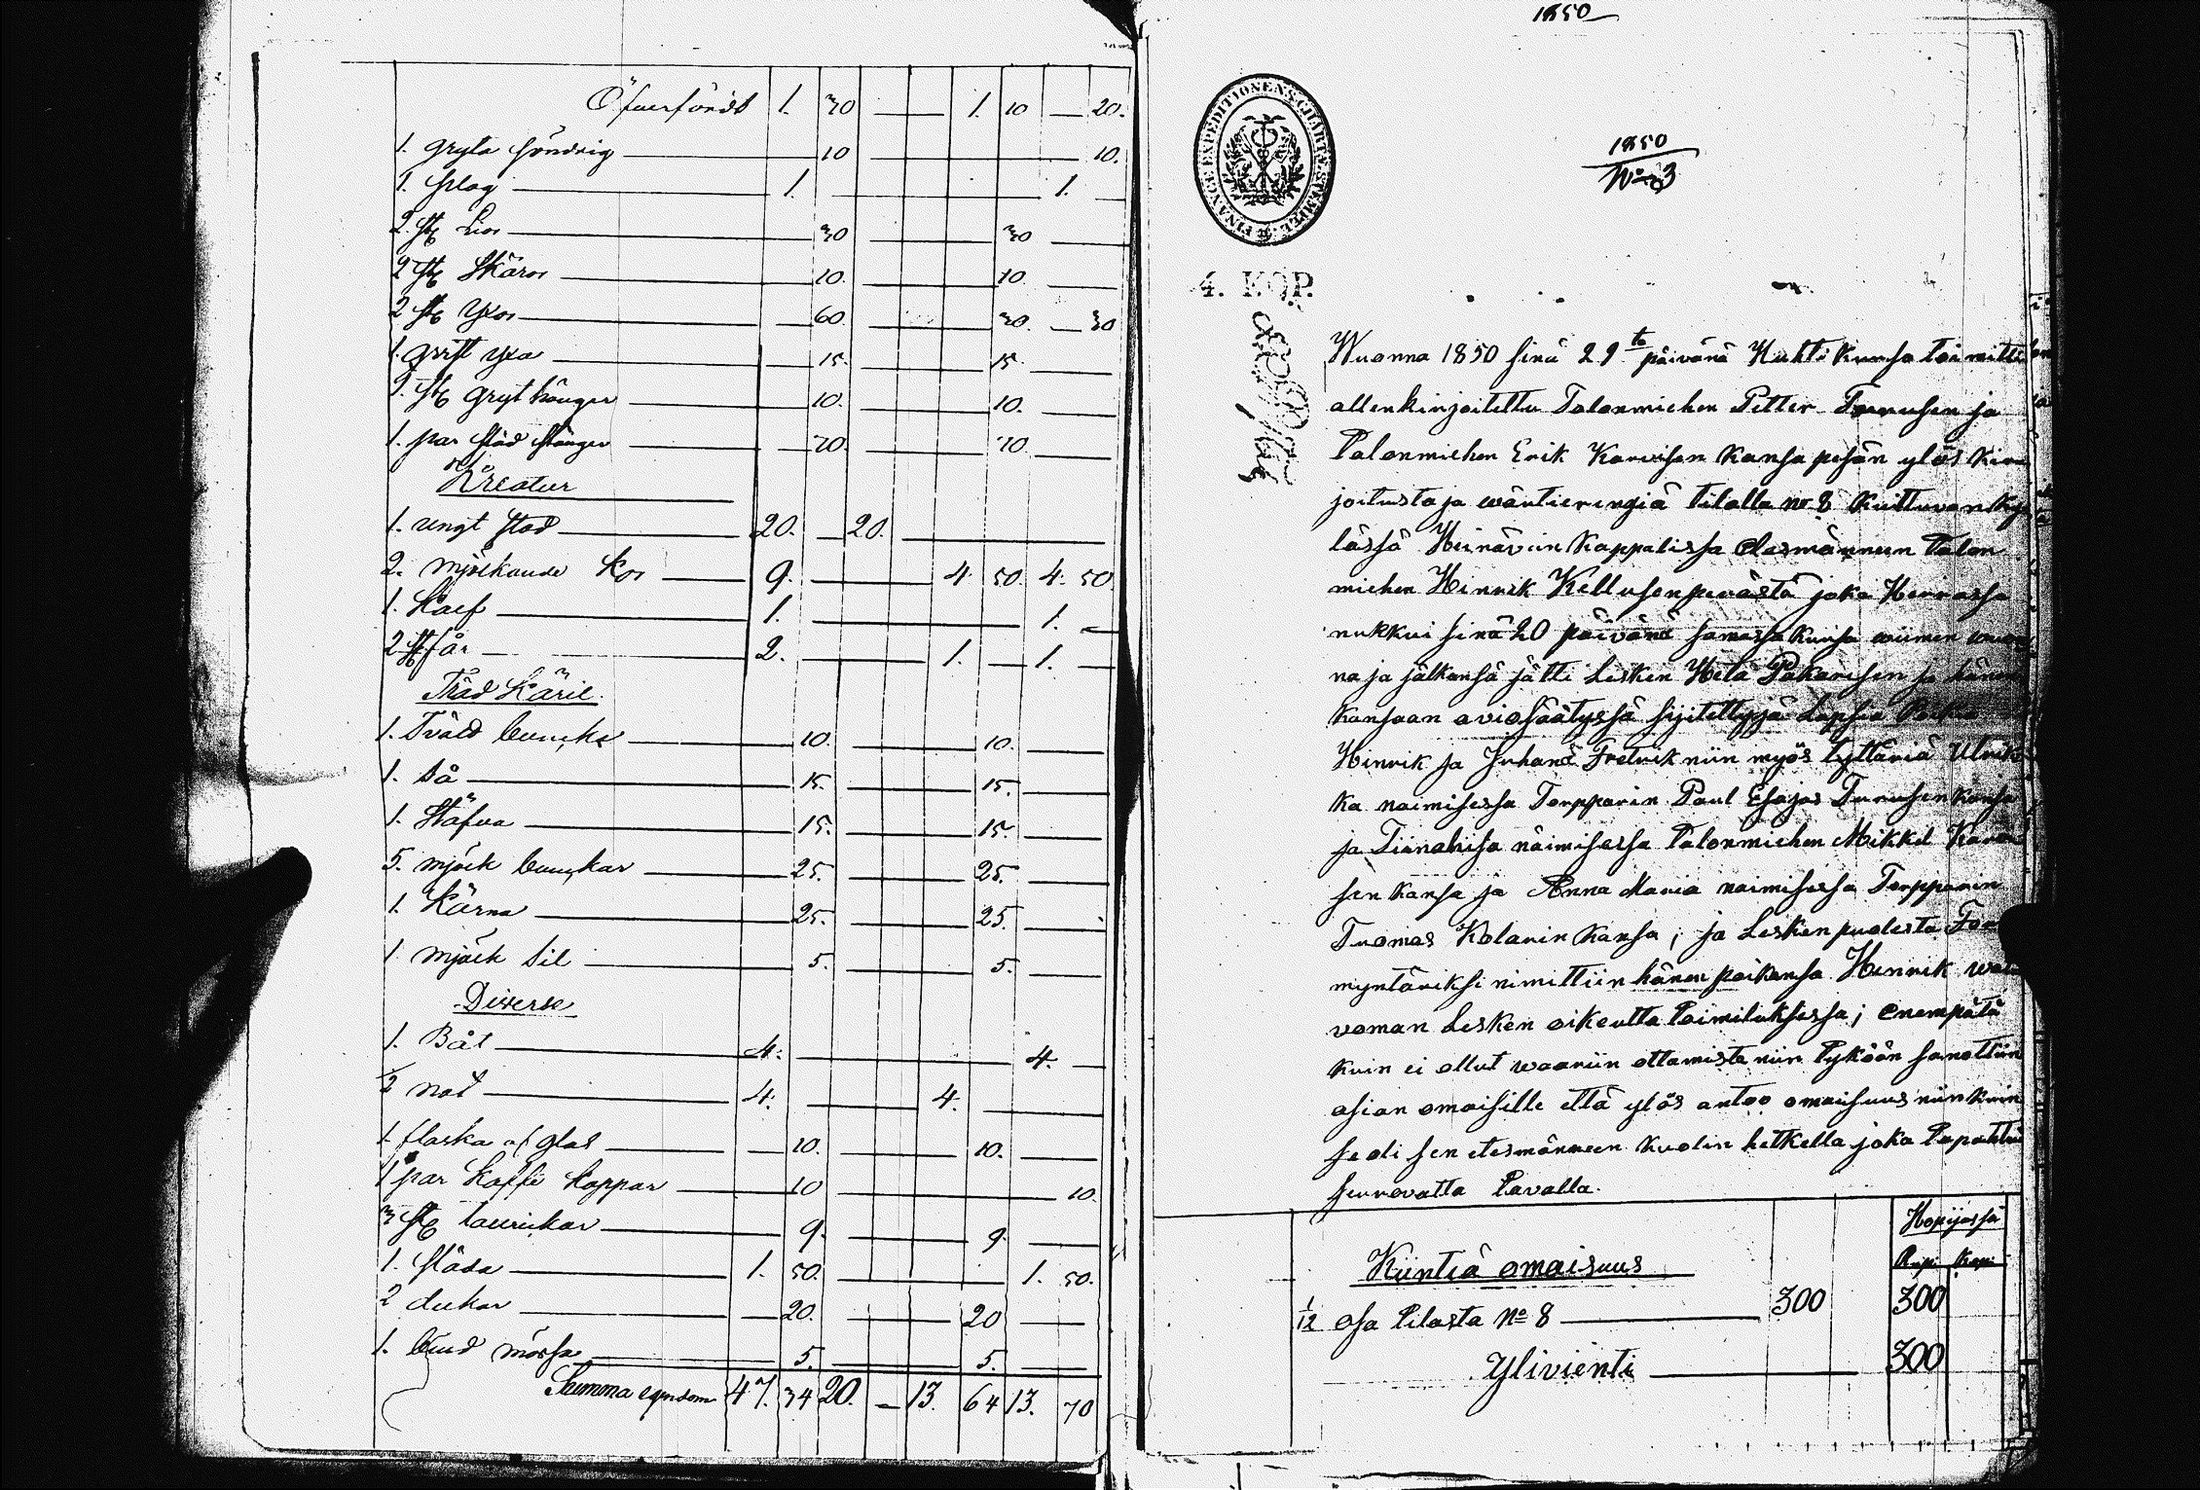 Öfverfördt 1. 30 — 1. 10 — 20.
1. gryta söndrig — 10 — 10.
1. plog — 1. — 1. —
2. st Liar — 30 — 30 —
2 st Skäror — 10. — 10. —
2 st Yxor — 60. — 30. — 30
1. Yxa — 15. — 15. —
st gryt — 10. — 10. —
1. par stänger — 20. — 20. —
Kreatur
1. ungt stod — 20. — 20. —
2. mjölkande Kor — 9. — 4. 50. 4. 50.
1. Kalf — 1. — 1. —
2 st får — 2. — 1. — 1. —
Träd Käril
1. bunke — 10. — 10. —
1. Så — 15. — 15. —
1. Stäfva — 15. — 15. —
5. mjölk bunkar — 25. — 25. —
1. Kärna — 25. — 25. —
1 mjölk Sil — 5. — 5. —
Diverse
1. Båt — 4. — 4. —
1/2 not — 4. — 4. —
1. flaska af glas — 10. — 10. —
1 par Kaffe Koppar — 10 — 10.
3 st — 9. — 9. —
1. Släda — 1. 50. — 1. 50.
2 dukar — 20. — 20 —
1. mössa — 5. — 5. —
Summa egendom 47. 34 20. — 13. 64 13. 70
1850
FINANCE EXPEDITIONENS CHARTÆ STEMPEL
1850
No 3
4. KOP.
Wuonna 1850 sinä 29to päivänä Huhti Kuussa toimitti
allenkirjoitettu Talonmiehen Petter Turusen ja
Talonmiehen Erik Karvisen kansa pesän ylös kir
joitusta ja wärtieringiä tilalla no 8 Kuittuvan Ky
lässä Heinävein Kappelissa edesmänneen Talon
miehen Hinrik Kellusen perästä joka Herrassa
nukkui sinä 20 päivänä samassa kuusa wiimen
na ja jälkensä jätti Lesken Pakarisen ja hänen
kansaan aviosäätyssä sijitettyjä Lapsia Poikia
Hinrik ja Juhana Fretrik niin myös tyttäriä Ulrik
ka naimisessa Torpparin Paul Esajas Turusen kansa
ja naimisessa Talonmiehen Mikkel
sen kansa ja Anna Maria naimisessa Torpparin
Tuomas Kolarin kansa; ja Lesken puolesta For
myntäriksi nimittiin hänen poikansa Hinrik
voman Lesken oikeutta toimituksessa; enempätä
kuin ei ollut waariin ottamista niin tykään sanottiin
asian omaisille että ylös antaa omaisuus niin kuin
se oli sen etesmänneen kuolin hetkellä joka tapahtu
seurovatta tavalla.
Hopijassa
Rupl Kopi
Kiintiä omaisuus
1/12 osa tilasta No 8 — 300 300
Ylivienti — 300